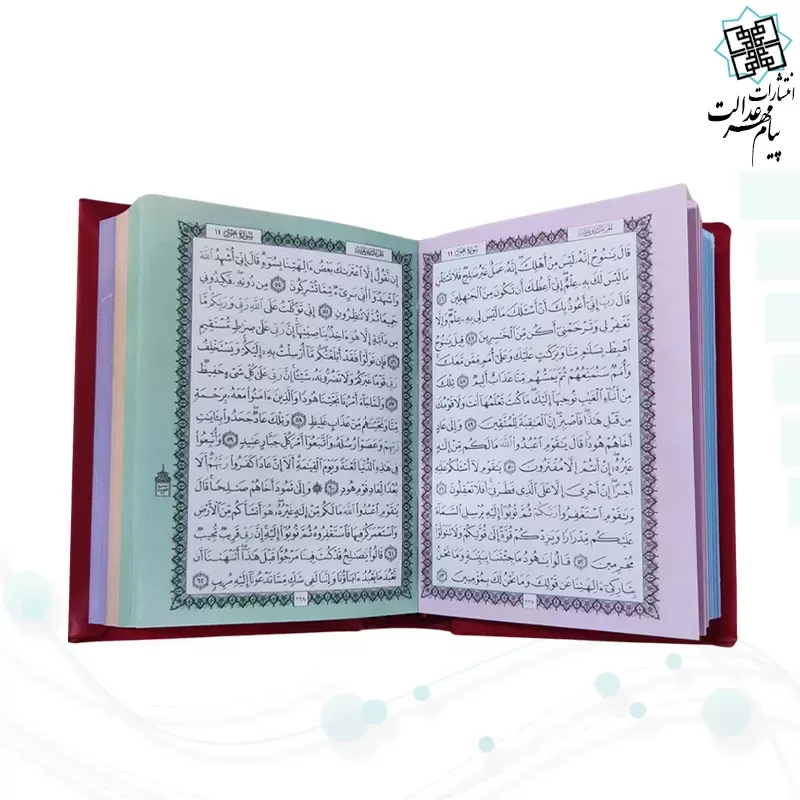 انتشارات
پیام مهر عدالت
الجزء الثاني عشر سورة هود ١١
قَالَ يَنُوحُ إِنَّهُ لَيْسَ مِنْ أَهْلِكَ إِنَّهُ عَمَلٌ غَيْرُ صَلِحٍ فَلَا تَسْئَلْنِ
مَا لَيْسَ لَكَ بِهِ عِلْمٌ إِنِّي أَعِظُكَ أَن تَكُونَ مِنَ الْجَهِلِينَ ٤٦
قَالَ رَبِّ إِنِّي أَعُوذُ بِكَ أَنْ أَسْئَلَكَ مَا لَيْسَ لِي بِهِ عِلْمٌ وَإِلَّا
تَغْفِرْ لِي وَتَرْحَمْنِي أَكُن مِّنَ الْخَسِرِينَ ٤٧ قِيلَ يَنُوحُ
اهْبِطْ بِسَلَمٍ مِّنَّا وَبَرَكَتٍ عَلَيْكَ وَعَلَى أُمَمٍ مِّمَّن مَّعَكَ
وَأُمَمٌ سَنُمَتِّعُهُمْ ثُمَّ يَمَسُّهُم مِّنَّا عَذَابٌ أَلِيمٌ ٤٨ تِلْكَ
مِنْ أَنبَاءِ الْغَيْبِ نُوحِيهَا إِلَيْكَ مَا كُنتَ تَعْلَمُهَا أَنتَ وَلَا قَوْمُكَ
مِن قَبْلِ هَذَا فَاصْبِرْ إِنَّ الْعَقِبَةَ لِلْمُتَّقِينَ ٤٩ وَإِلَى عَادٍ
أَخَاهُمْ هُودًا قَالَ يَقَوْمِ اعْبُدُوا اللَّهَ مَا لَكُم مِّنْ إِلَهٍ
غَيْرُهُ إِنْ أَنتُمْ إِلَّا مُفْتَرُونَ ٥٠ يَقَوْمِ لَا أَسْئَلُكُمْ عَلَيْهِ
أَجْرًا إِنْ أَجْرِيَ إِلَّا عَلَى الَّذِي فَطَرَنِي أَفَلَا تَعْقِلُونَ ٥١
وَيَقَوْمِ اسْتَغْفِرُوا رَبَّكُمْ ثُمَّ تُوبُوا إِلَيْهِ يُرْسِلِ السَّمَاءَ
عَلَيْكُم مِّدْرَارًا وَيَزِدْكُمْ قُوَّةً إِلَى قُوَّتِكُمْ وَلَا تَتَوَلَّوْا
مُجْرِمِينَ ٥٢ قَالُوا يَهُودُ مَا جِئْتَنَا بِبَيِّنَةٍ وَمَا نَحْنُ
بِتَارِكِي ءَالِهَتِنَا عَن قَوْلِكَ وَمَا نَحْنُ لَكَ بِمُؤْمِنِينَ ٥٣
٢٢٧
الجزء الثاني عشر سورة هود ١١
إِن نَّقُولُ إِلَّا اعْتَرَىكَ بَعْضُ ءَالِهَتِنَا بِسُوءٍ قَالَ إِنِّي أُشْهِدُ اللَّهَ
وَاشْهَدُوا أَنِّي بَرِيءٌ مِّمَّا تُشْرِكُونَ ٥٤ مِن دُونِهِ فَكِيدُونِي
جَمِيعًا ثُمَّ لَا تُنظِرُونِ ٥٥ إِنِّي تَوَكَّلْتُ عَلَى اللَّهِ رَبِّي وَرَبِّكُم مَّا
مِن دَابَّةٍ إِلَّا هُوَ ءَاخِذٌ بِنَاصِيَتِهَا إِنَّ رَبِّي عَلَى صِرَطٍ مُّسْتَقِيمٍ
٥٦ فَإِن تَوَلَّوْا فَقَدْ أَبْلَغْتُكُم مَّا أُرْسِلْتُ بِهِ إِلَيْكُمْ وَيَسْتَخْلِفُ
رَبِّي قَوْمًا غَيْرَكُمْ وَلَا تَضُرُّونَهُ شَيْئًا إِنَّ رَبِّي عَلَى كُلِّ شَيْءٍ حَفِيظٌ
٥٧ وَلَمَّا جَاءَ أَمْرُنَا نَجَّيْنَا هُودًا وَالَّذِينَ ءَامَنُوا مَعَهُ بِرَحْمَةٍ
مِّنَّا وَنَجَّيْنَهُم مِّنْ عَذَابٍ غَلِيظٍ ٥٨ وَتِلْكَ عَادٌ جَحَدُوا بِئَايَتِ
رَبِّهِمْ وَعَصَوْا رُسُلَهُ وَاتَّبَعُوا أَمْرَ كُلِّ جَبَّارٍ عَنِيدٍ ٥٩ وَأُتْبِعُوا
فِي هَذِهِ الدُّنْيَا لَعْنَةً وَيَوْمَ الْقِيَمَةِ أَلَا إِنَّ عَادًا كَفَرُوا رَبَّهُمْ أَلَا
بُعْدًا لِّعَادٍ قَوْمِ هُودٍ ٦٠ وَإِلَى ثَمُودَ أَخَاهُمْ صَلِحًا قَالَ
يَقَوْمِ اعْبُدُوا اللَّهَ مَا لَكُم مِّنْ إِلَهٍ غَيْرُهُ هُوَ أَنشَأَكُم مِّنَ الْأَرْضِ
وَاسْتَعْمَرَكُمْ فِيهَا فَاسْتَغْفِرُوهُ ثُمَّ تُوبُوا إِلَيْهِ إِنَّ رَبِّي قَرِيبٌ مُّجِيبٌ
٦١ قَالُوا يَصَلِحُ قَدْ كُنتَ فِينَا مَرْجُوًّا قَبْلَ هَذَا أَتَنْهَىنَا أَن
نَّعْبُدَ مَا يَعْبُدُ ءَابَاؤُنَا وَإِنَّنَا لَفِي شَكٍّ مِّمَّا تَدْعُونَا إِلَيْهِ مُرِيبٍ ٦٢
٢٢٨